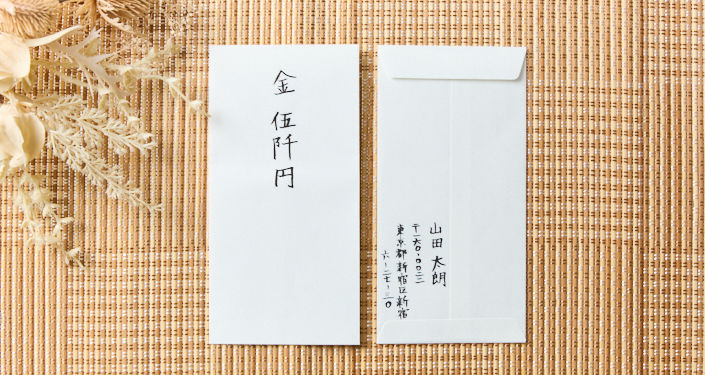 金 伍阡円
山田 太朗
〒一六〇-〇〇二二
東京都新宿区新宿
六-二七-三〇